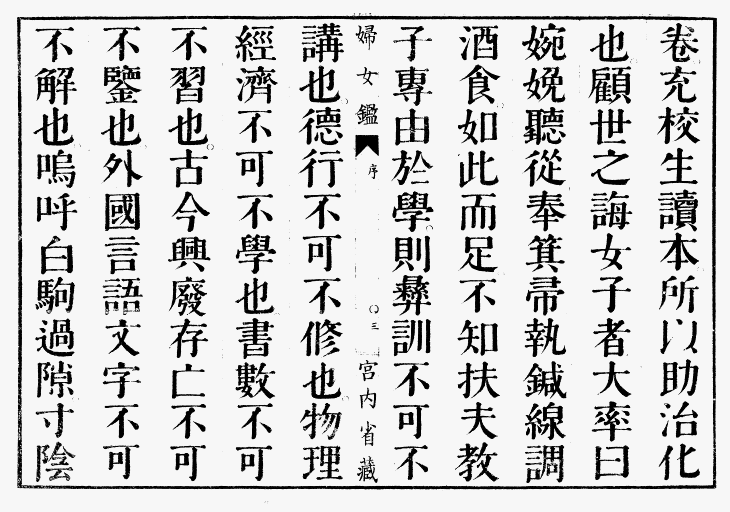 卷充校生讀本所以助治化
也顧世之誨女子者大率曰
婉娩聽從奉箕帚執鍼線調
酒食如此而足不知扶夫教
子專由於學則彝訓不可不
婦女鑑
序
〇三
宮內省藏
講也德行不可不修也物理
經濟不可不學也書數不可
不習也古今興廢存亡不可
不鑒也外國言語文字不可
不解也嗚呼白駒過隙寸陰